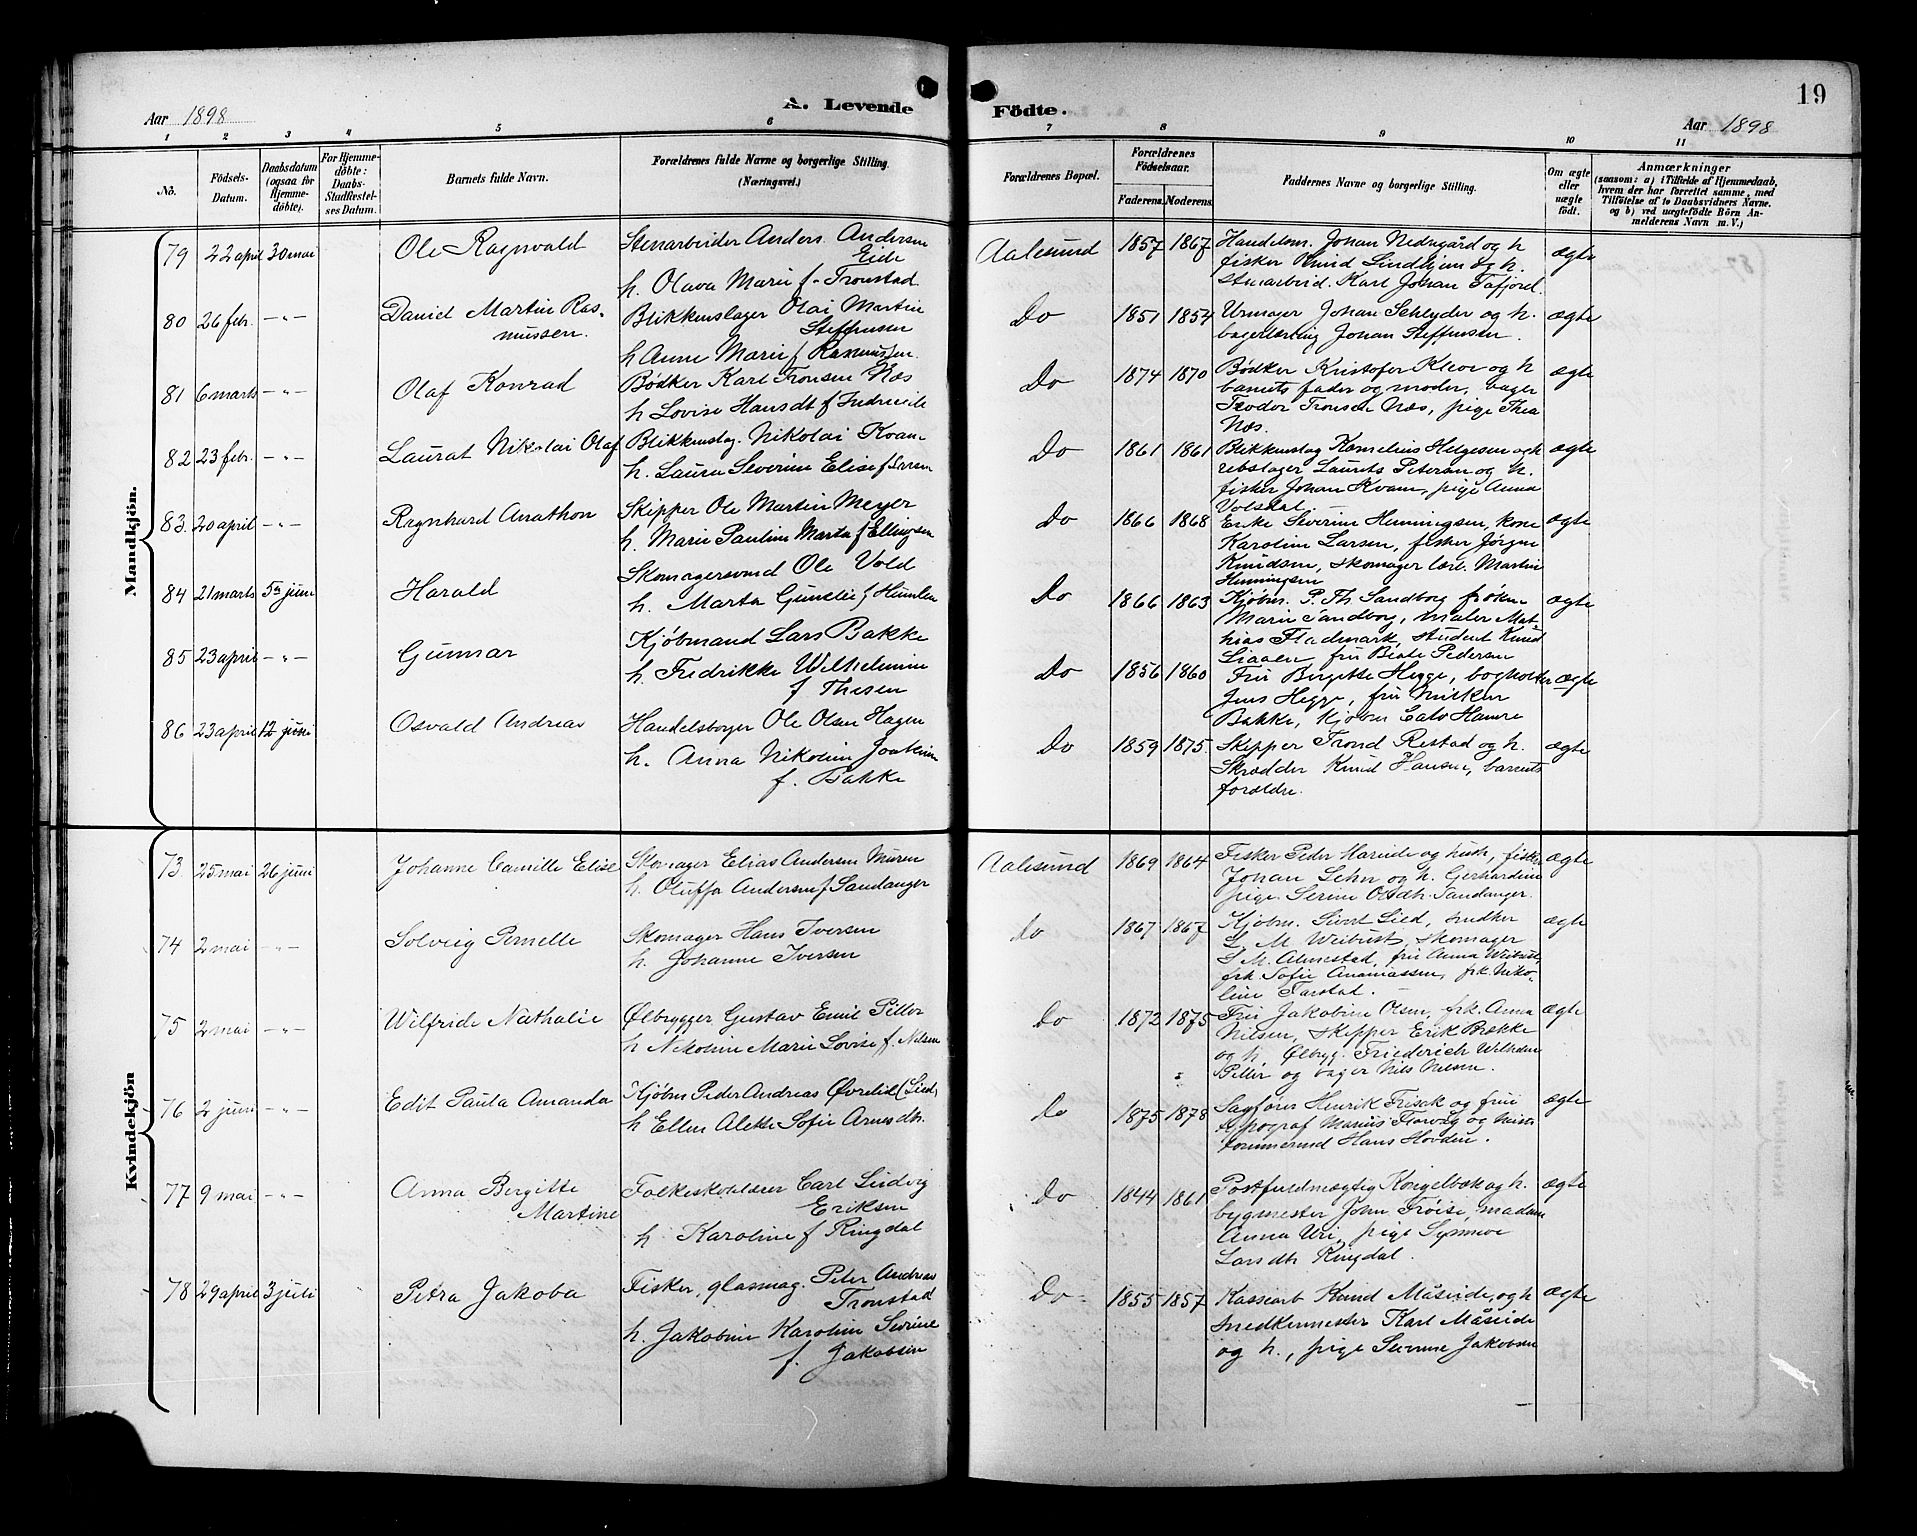 19
Aar 1898
A. Levende
Födte.
Aar 1898
1 2 3 4 5 6 7 8 9 10 11
No.
Födsels-
Datum.
Daabsdatum
(ogsaa for
Hjemme-
döbte).
For Hjemme-
döbte:
Daabs-
Stadfæstel-
ses Datum.
Barnets fulde Navn.
Forældrenes fulde Navne og borgerlige Stilling.
(Næringsvei.)
Forældrenes Bopæl.
Forældrenes
Födselsaar.
Faderens. Moderens.
Faddernes Navne og borgerlige Stilling.
Om ægte
eller
uægte
födt.
Anmærkninger
(saasom: a) i Tilfælde af Hjemmedaab,
hvem der har forrettet samme, med
Tilföielse af to Daabsvidners Navne.
og b) ved uægtefödte Börn An-
melderens Navn m. V.)
Mandkjön.
79 22 april 30 mai
Ole Ragnvald
Stenarbeider Anders Andersen
Eide
h. Olava Marie f. Tronstad
Aalesund 1857 1867
Handelsm. Johan Nedregård og h.
fisker Knud Lindhjem og h.
stenarbeid. Karl Johan Tafjord.
ægte
80 26 febr. -"-
David Martin Ras-
mussen.
Blikkenslager Olai Martin
Steffensen
h Anne Marie f Rasmussen.
Do 1851 1854
Urmager Johan Schlyder og h.
bagerlærling Johan Steffensen.
ægte
81 6 marts -"-
Olaf Konrad
Bødker Karl Tronsen Næs
h Lovise Hansdt f Indreeide
Do 1874 1870
Bødker Kristofer Kleve og h
barnets fader og moder, bager
Teodor Tronsen Næs, pige Thea
Næs.
ægte
82 23 febr. -"-
Laurat Nikolai Olaf
Blikkenslag. Nikolai Kvam
h. Laura Severine Elise f Larsen
Do 1861 1861
Blikkenslag Kornelius Helgesen og h
rebslager Laurits Petersen og h.
fisker Johan Kvam, pige Anna
Volsdal.
ægte
83. 20 april -"-
Regnhard Anathon
Skipper Ole Martin Meyer
h. Marie Pauline Marta f Ellingsen
Do 1866 1868
Enke Severine Henningsen, kone
Karoline Larsen, fisker Jørgen
Knudsen, skomager lærl. Martin
Henningsen
ægte
84 21 marts 5te juni
Harald
Skomagersvend Ole Vold
h. Marta Gunelie f Humlen
Do 1866 1863
Kjøbm. P. Th. Sandborg frøken
Marie Sandborg, maler Mat-
hias Flademark, student Knud
Liaaen fru Beate Pedersen
ægte
85 23 april -"-
Gunnar
Kjøbmand Lars Bakke
h. Fredrikke Wilhelmine
f Thesen
Do 1856 1860
Fru Birgitte Hegge, bogholder
Jens Hegge, fru
Bakke, kjøbm Cato Hamre
ægte
86 23 april 12 juni
Osvald Andreas
Handelsborger Ole Olsen Hagen
h. Anna Nikoline Joakime
f. Bakke
Do 1859 1875.
Skipper Trond Restad og h.
Skrædder Knud Hansen, barnets
forældre.
ægte
Kvindekjön
73. 25 mai 26 juni
Johanne Camille Elise
Skomager Elias Andersen Muren
h. Oluffa Andersen f Sandanger
Aalesund 1869 1864
Fisker Peder Hareide og hust, fisker
Johan Lehn og h. Gerhardine
pige Serine Olsdt. Sandanger.
ægte
74 2 mai -"-
Solveig Pernelle
Skomager Hans Iversen
h. Johanne Iversen
do 1867 1867
Kjøbm. Sivert Lied, snedker
L. M. Weibust, skomager
S M. Almestad, fru Anna Weibust
frk. Sofie Ananiassen, frk. Niko-
line Tarstad.
ægte
75 2 mai -"-
Wilfride Nathalie
Ølbrygger Gustav Emil Piller
h Nikoline Marie Lovise f. Nilsen
Do 1872 1875
Fru Jakobine Olsen, frk. Anna
Nilsen, skipper Erik Brække
og h, Ølbryg. Friederich Wilhelm
Piller og bager Nils Nilsen.
ægte
76 2 juni -"-
Edit Paula Amanda
Kjøbm Peder Andreas Øvrelid (Lied)
h Ellen Alette Sofie Arnesdtr.
Do 1875 1878
Sagfører Henrik Frisak og frue
typograf Marius Florvåg og
tømmermd Hans Hovden.
ægte
77 9 mai -"-
Anna Bergitte
Martine
Folkeskolelærer Carl Ludvig
Eriksen
h. Karoline f Ringdal
Do 1844 1861
Postfuldmægtig Kongelbæk og h.
bygmester John Frøise, madam
Anna Uri, pige Synnøve
Larsdtr Ringdal.
ægte
78 29 april 3 juli
Petra Jakoba
Fisker, glasmag. Peter Andreas
Tronstad
h. Jakobine Karoline Severine
f. Jakobsen
Do 1855 1857
Kassearb Knud Måseide, og h
snedkermester Karl Måseide
og h., pige Severine Jakobsen
ægte